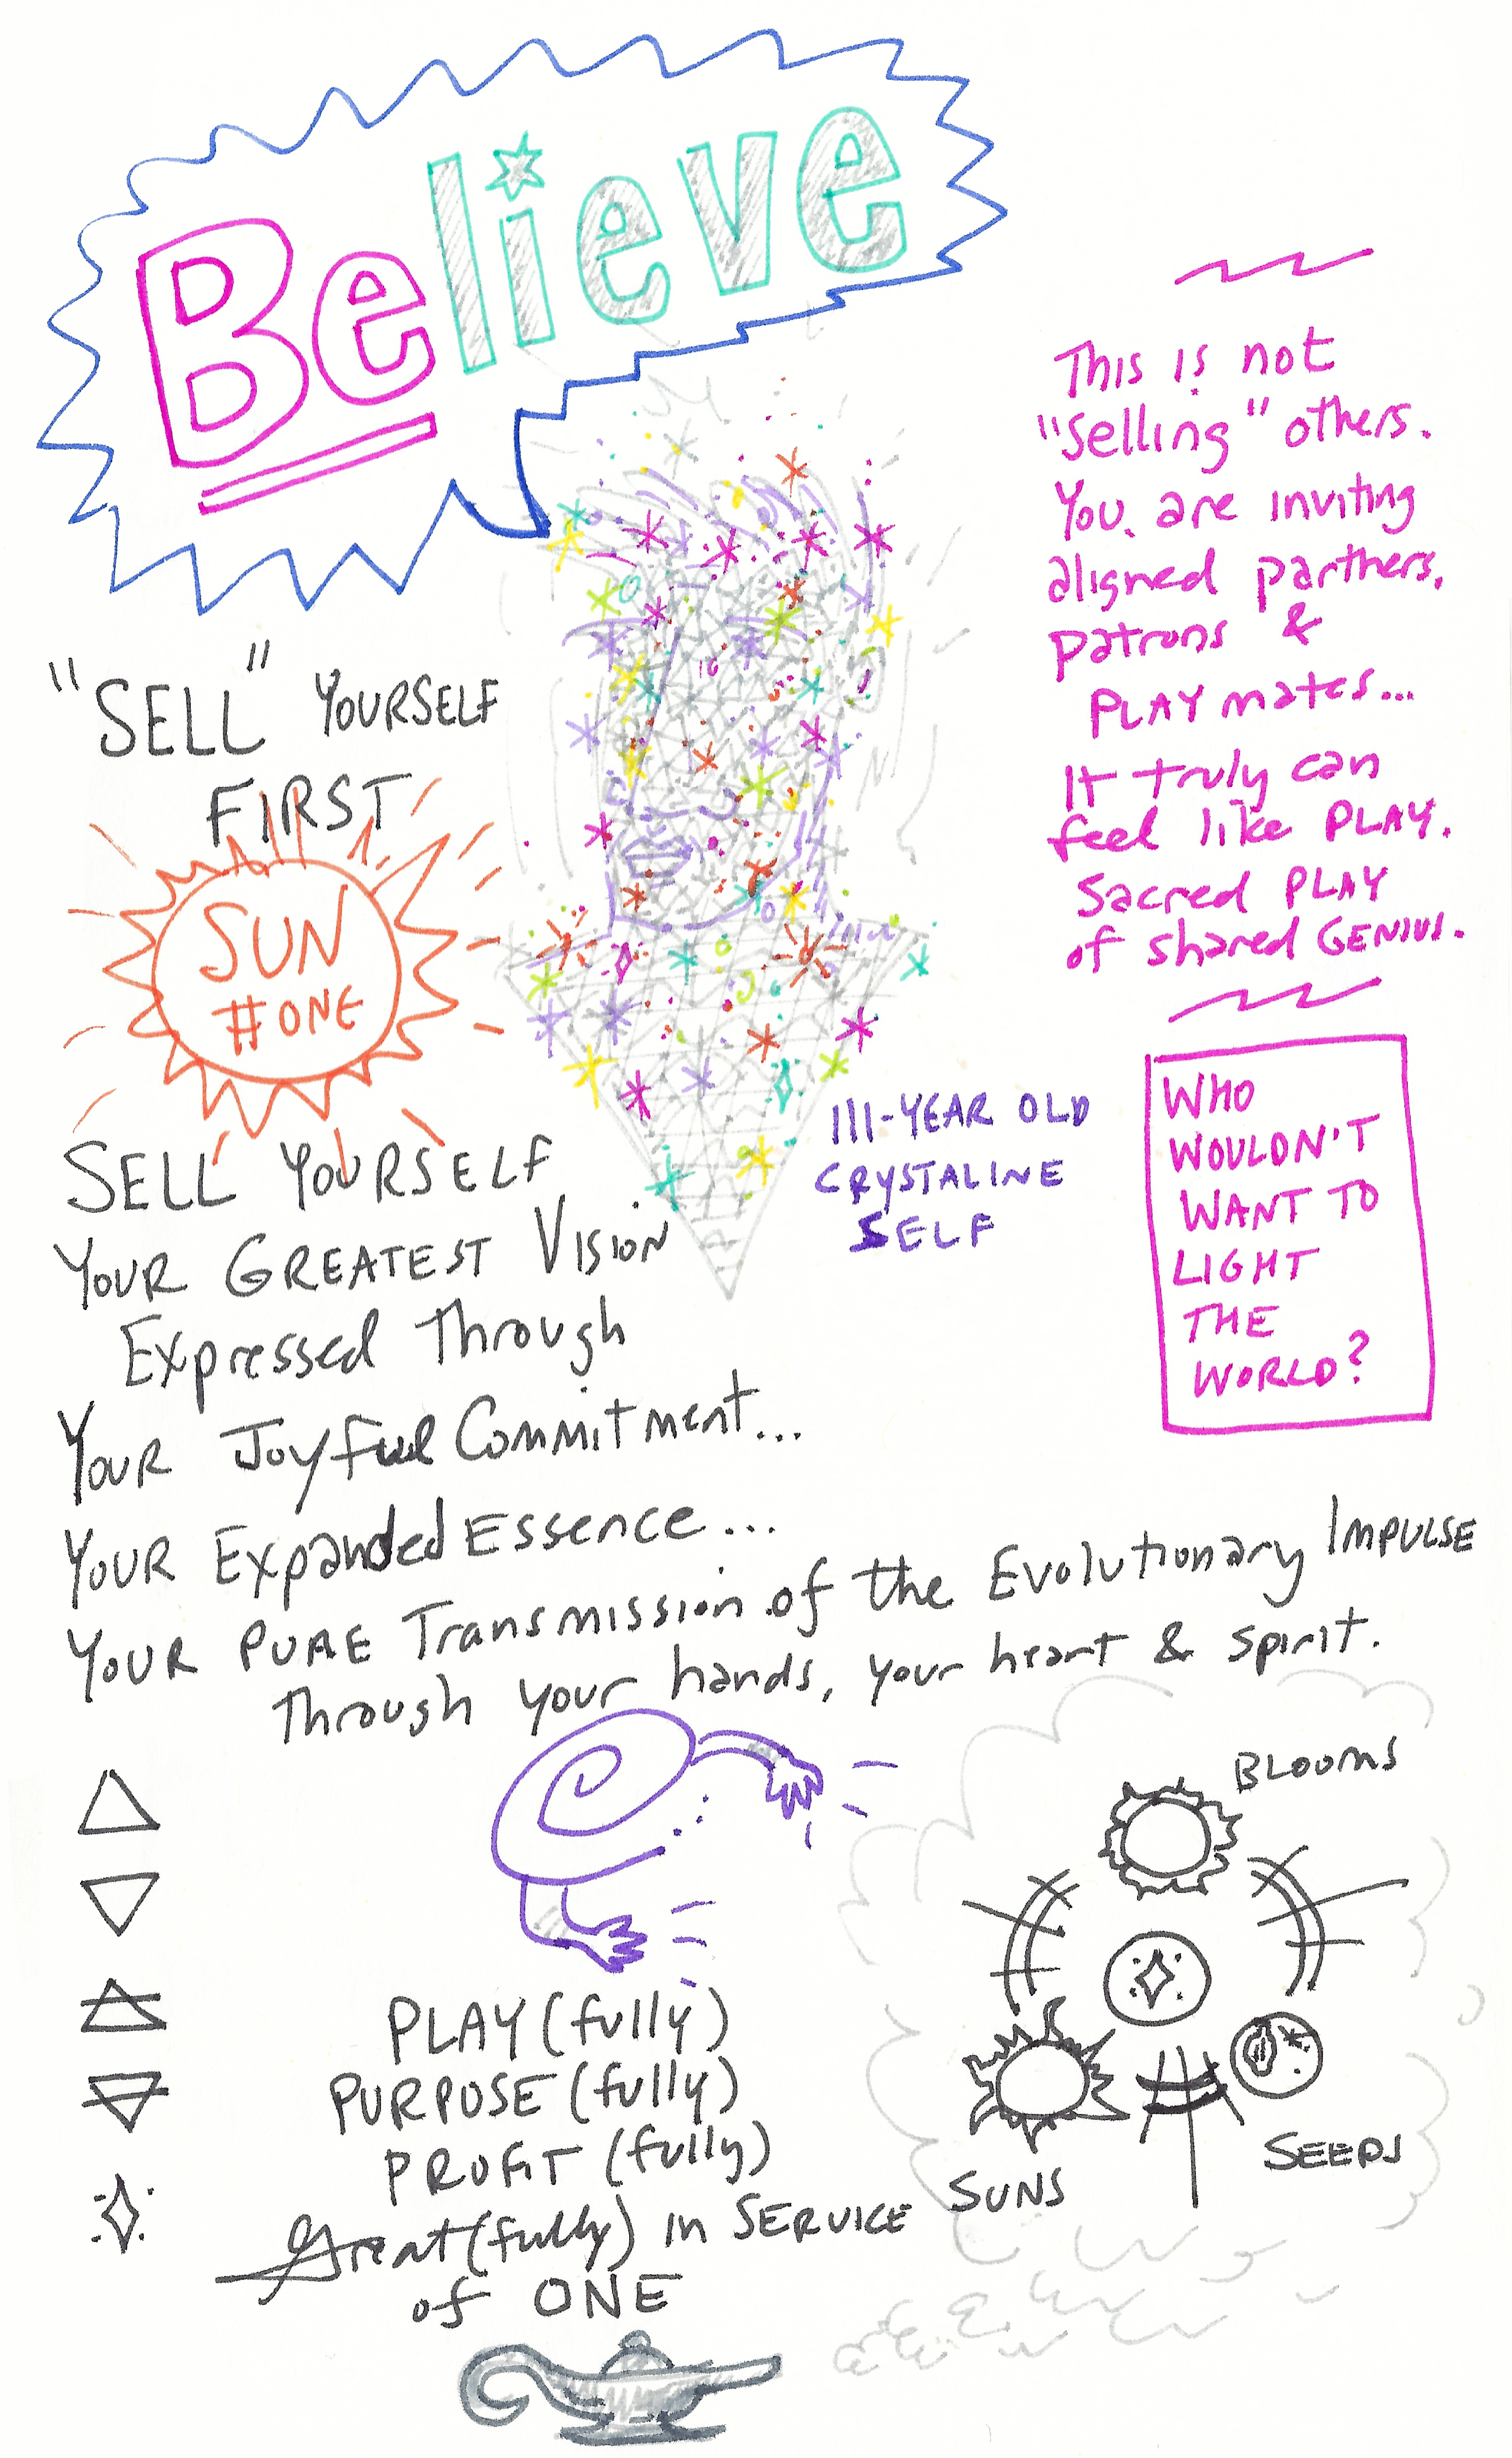 Believe
"SELL" YOURSELF
FIRST
SUN
#ONE
SELL YOURSELF
YOUR GREATEST VISION
Expressed Through
YOUR Joyful Commitment...
YOUR Expanded Essence...
YOUR PURE Transmission of the Evolutionary IMPULSE
Through your hands, your heart & spirit.
This is not
"Selling" others.
You are inviting
aligned partners,
patrons &
PLAYmates...
It truly can
feel like PLAY.
Sacred PLAY
of shared GENIUS.
WHO
WOULDN'T
WANT TO
LIGHT
THE
WORLD?
111-YEAR OLD
CRYSTALINE
SELF
PLAY (fully)
PURPOSE (fully)
PROFIT (fully)
Great(fully) in SERVICE
of ONE
BLOOMS
SUNS
SEEDS